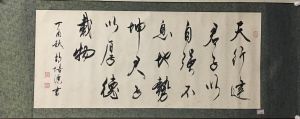 天行健
君子以
自强不
息地勢
坤君子
以厚德
載物
丁酉秋